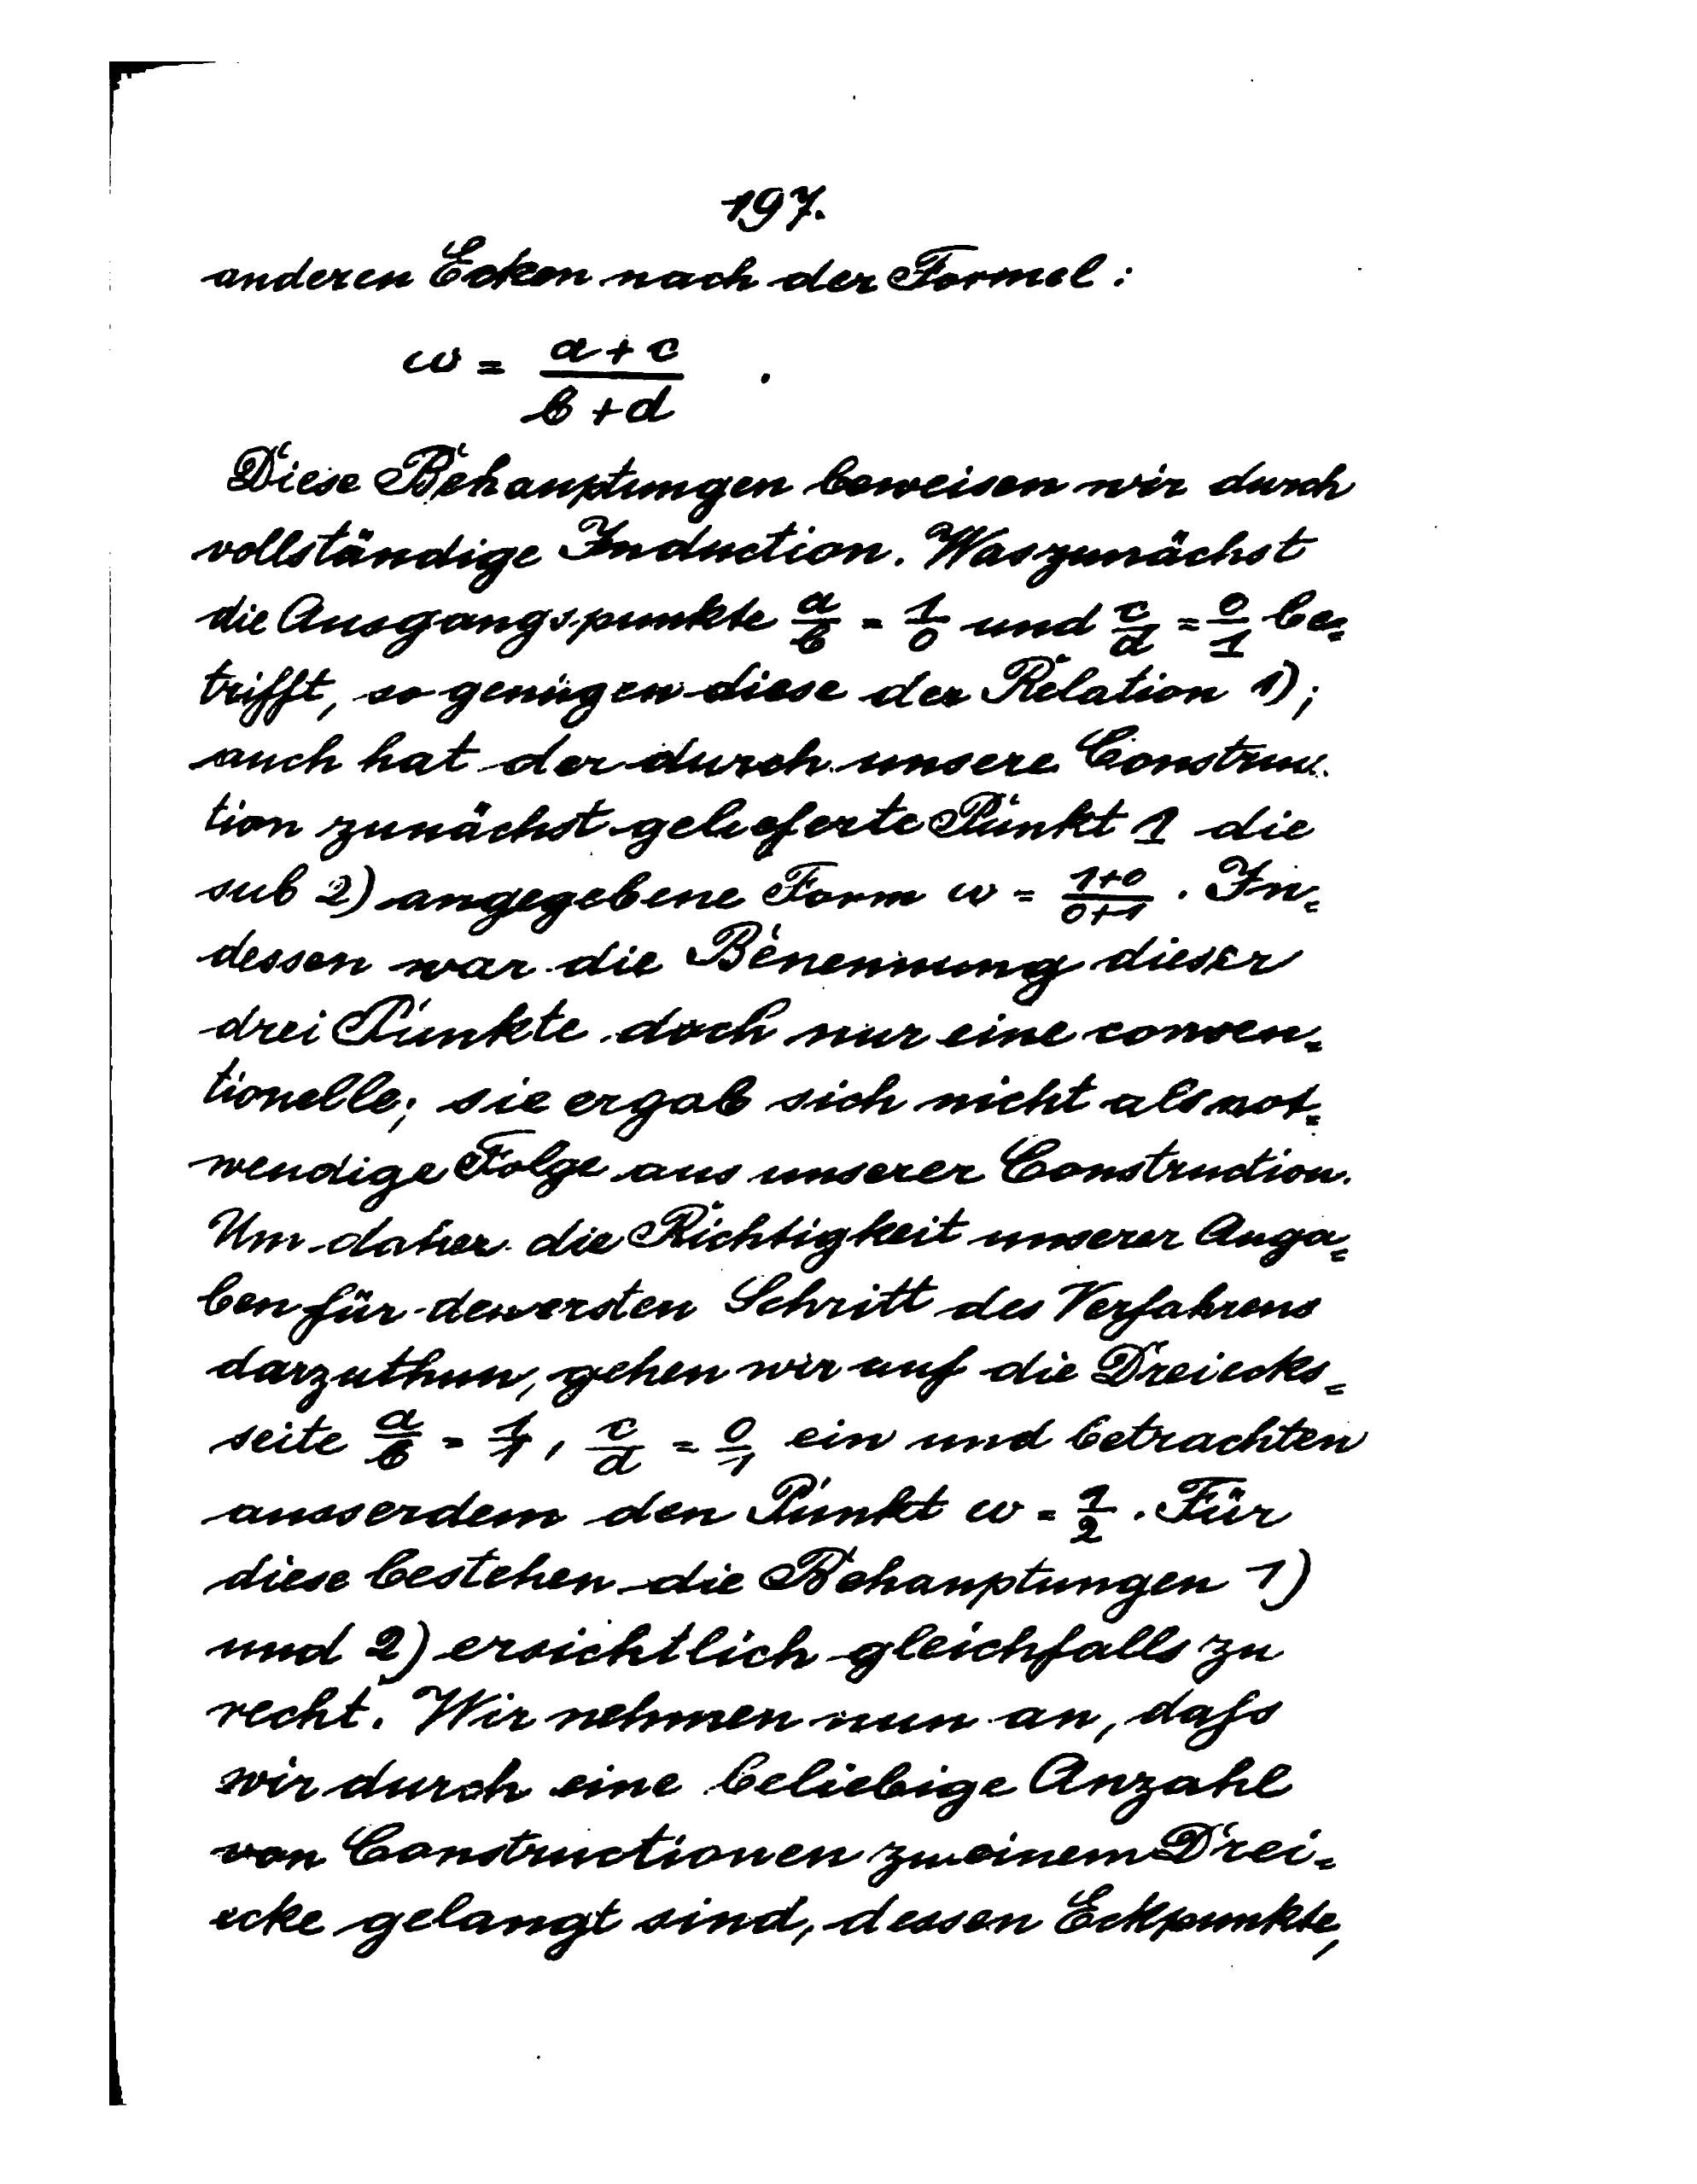 197.
anderen Ecken nach der Formel:
ω = (a+c)/(b+d) .
Diese Behauptungen beweisen wir durch
vollständige Induction. Was zunächst
die Ausgangspunkte a/b = 1/0 und c/d = 0/1 be-
trifft, so genügen diese der Relation 1);
auch hat der durch unsere Construc-
tion zunächst gelieferte Punkt 1 die
sub 2) angegebene Form ω = (1+0)/(0+1) . In-
dessen war die Benennung dieser
drei Punkte doch nur eine conven-
tionelle; sie ergab sich nicht als not-
wendige Folge aus unserer Construction.
Um daher die Richtigkeit unserer Anga-
ben für den ersten Schritt des Verfahrens
darzuthun, gehen wir auf die Dreiecks-
seite a/b = 1/1, c/d = 0/1 ein und betrachten
ausserdem den Punkt ω = 1/2 . Für
diese bestehen die Behauptungen 1)
und 2) ersichtlich gleichfalls zu
recht. Wir nehmen nun an, daſs
wir durch eine beliebige Anzahl
von Constructionen zu einem Drei-
ecke gelangt sind, dessen Eckpunkte,